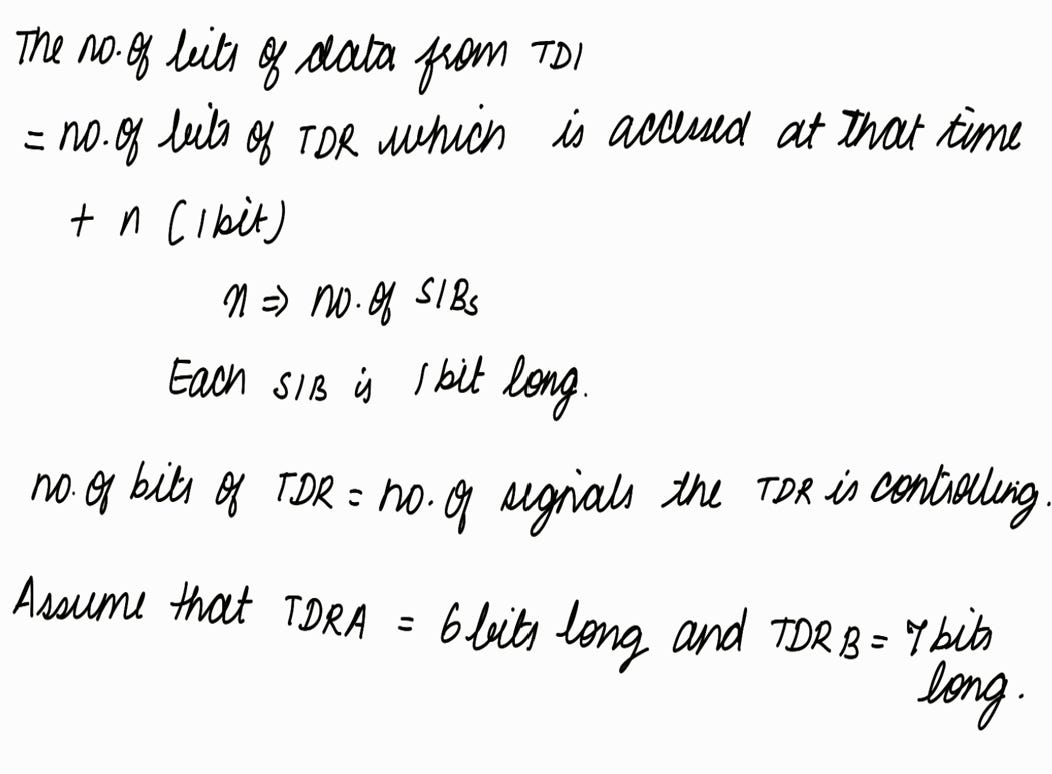 The no. of bits of data from TDI
= no. of bits of TDR which is accessed at that time
+ n (1 bit)
n => no. of SIBs
Each SIB is 1 bit long.
no. of bits of TDR = no. of signals the TDR is controlling.
Assume that TDRA = 6 bits long and TDR B = 7 bits
long.